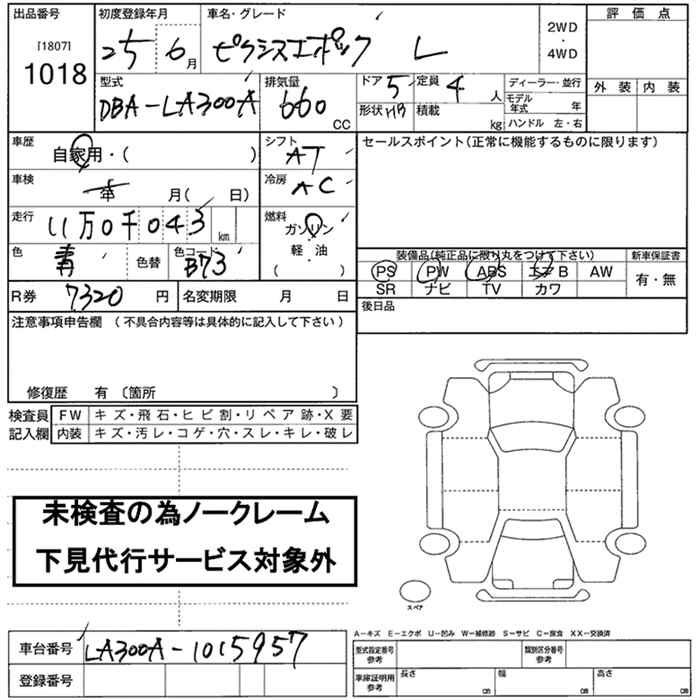 出品番号 初度登録年月 車名・グレード 評価点
[1807]
1018
25年 6月 ピクシスエポック L
2WD
・
4WD
型式 排気量 ドア 5 定員 4人 ディーラー・並行 外装 内装
DBA-LA300A 660 CC 形状 HB 積載 kg モデル年式 年
ハンドル 左・右
車歴 自家用・( ) シフト AT セールスポイント(正常に機能するものに限ります)
車検 年 月( 日) 冷房 AC
走行 11万0千043 km 燃料 ガソリン
軽・油
( )
色 青 色替 色コード B73
装備品(純正品に限り丸をつけて下さい) 新車保証書
PS PW ABS エアB AW 有・無
SR ナビ TV カワ
R券 7320円 名変期限 月 日 後日品
注意事項申告欄 (不具合内容等は具体的に記入して下さい)
修復歴 有 〔箇所 〕
検査員 FW キズ・飛石・ヒビ割・リペア跡・X要
記入欄 内装 キズ・汚レ・コゲ・穴・スレ・キレ・破レ
未検査の為ノークレーム
下見代行サービス対象外
スペア
A-キズ E-エクボ U-凹み W-補修跡 S-サビ C-腐食 XX-交換済
車台番号 LA300A-1015957
型式指定番号 参考 類別区分番号 参考
登録番号
車庫証明用 参考 長さ cm 幅 cm 高さ cm